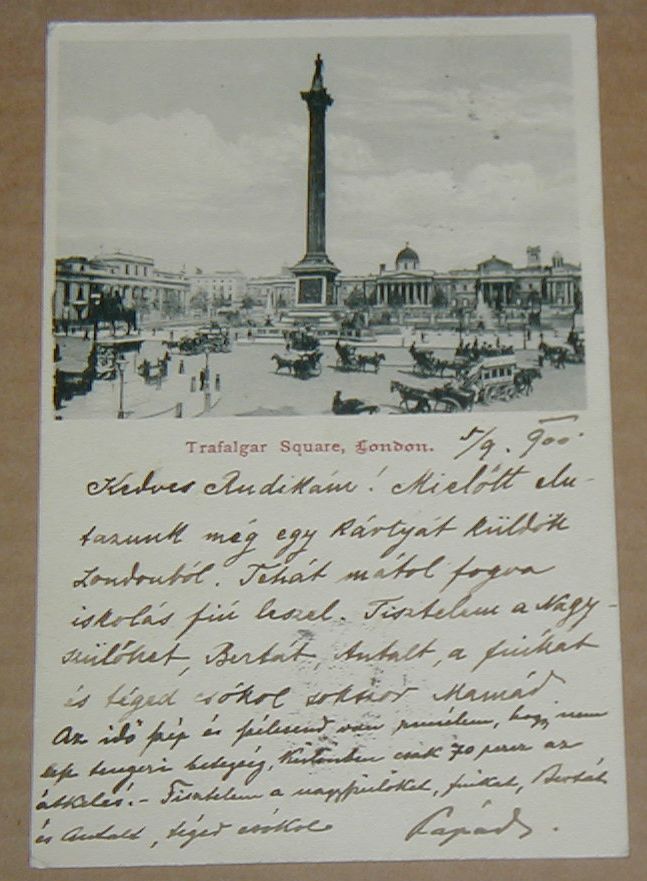 Trafalgar Square, London. 5/9. 900.
Kedves Rudikám! Mielőtt elu-
tazunk még egy kártyát küldök
Londonból. Tehát mától fogva
iskolás fiú leszel. Tisztelem a Nagy-
szülőket, Bertát, Antalt, a fiúkat
és téged csókol sokszor Mamád
Az idő szép és szélcsend van remélem, hogy nem
lesz tengeri betegség, különben csak 70 percz az
átkelés. - Tisztelem a nagyszülőket, fiúkat, Bertát
és Antalt, téged csókol Papád.